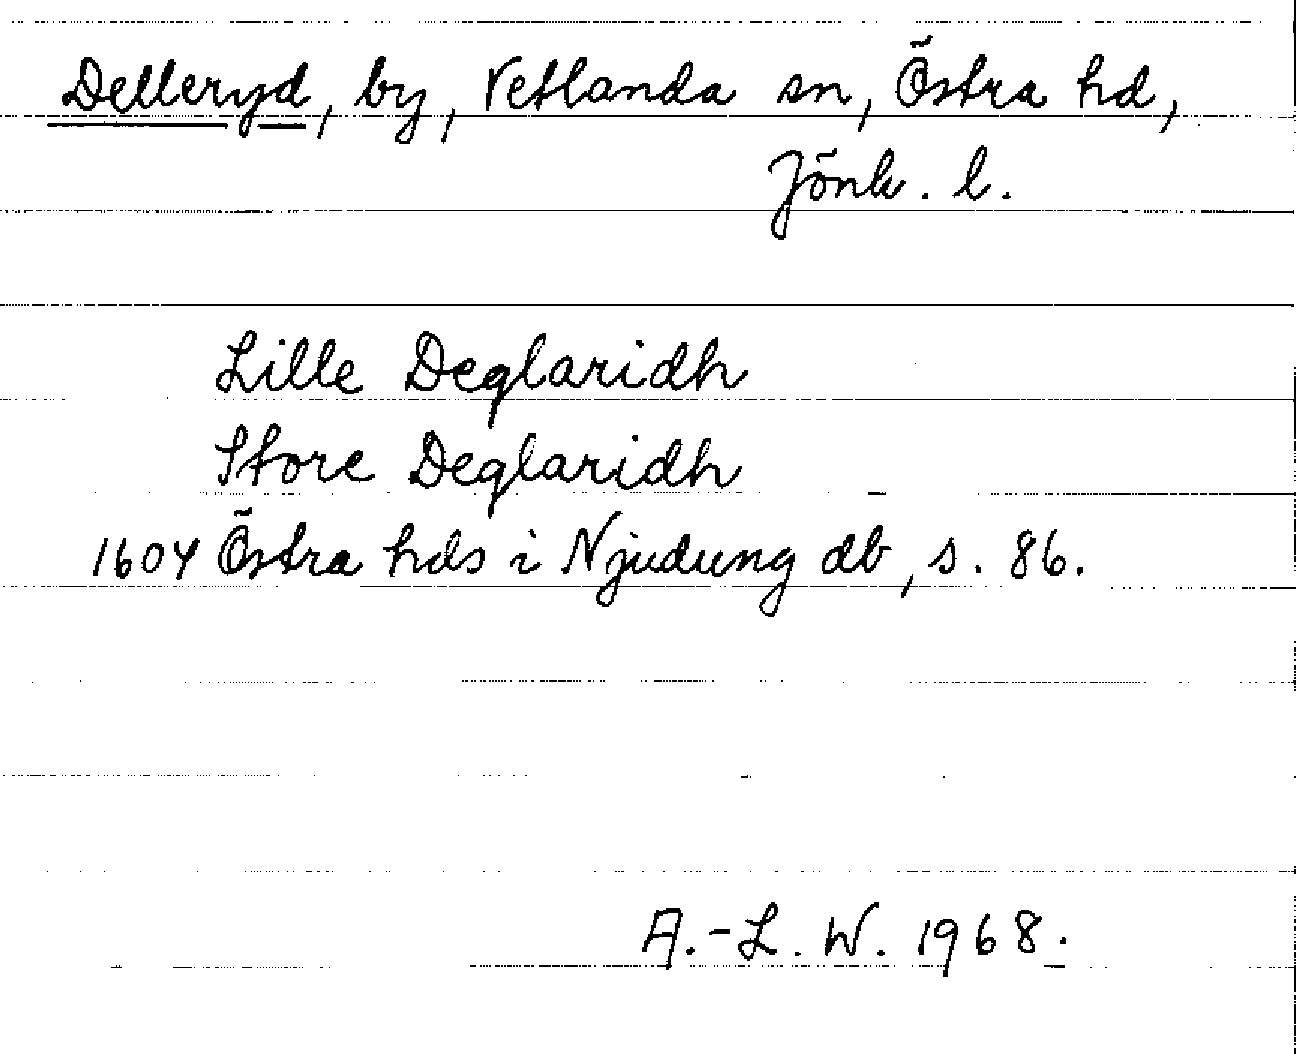 Delleryd, by, Vetlanda sn, Östra hd,
Jönk. l.
Lille Deglaridh
Store Deglaridh
1604 Östra hds i Njudung db, s. 86.
A.-L. W. 1968.